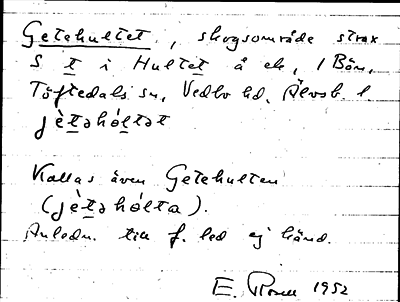 Getehultet, skogsområde strax
S t i Hultet å ek, 1 Bön,
Töftedals sn, Vedbo hd, Älvsb. l.
jètəhóltət
Kallas även Getehulten
(jètəhólta).
Anledn. till f. led ej känd.
E. 1952